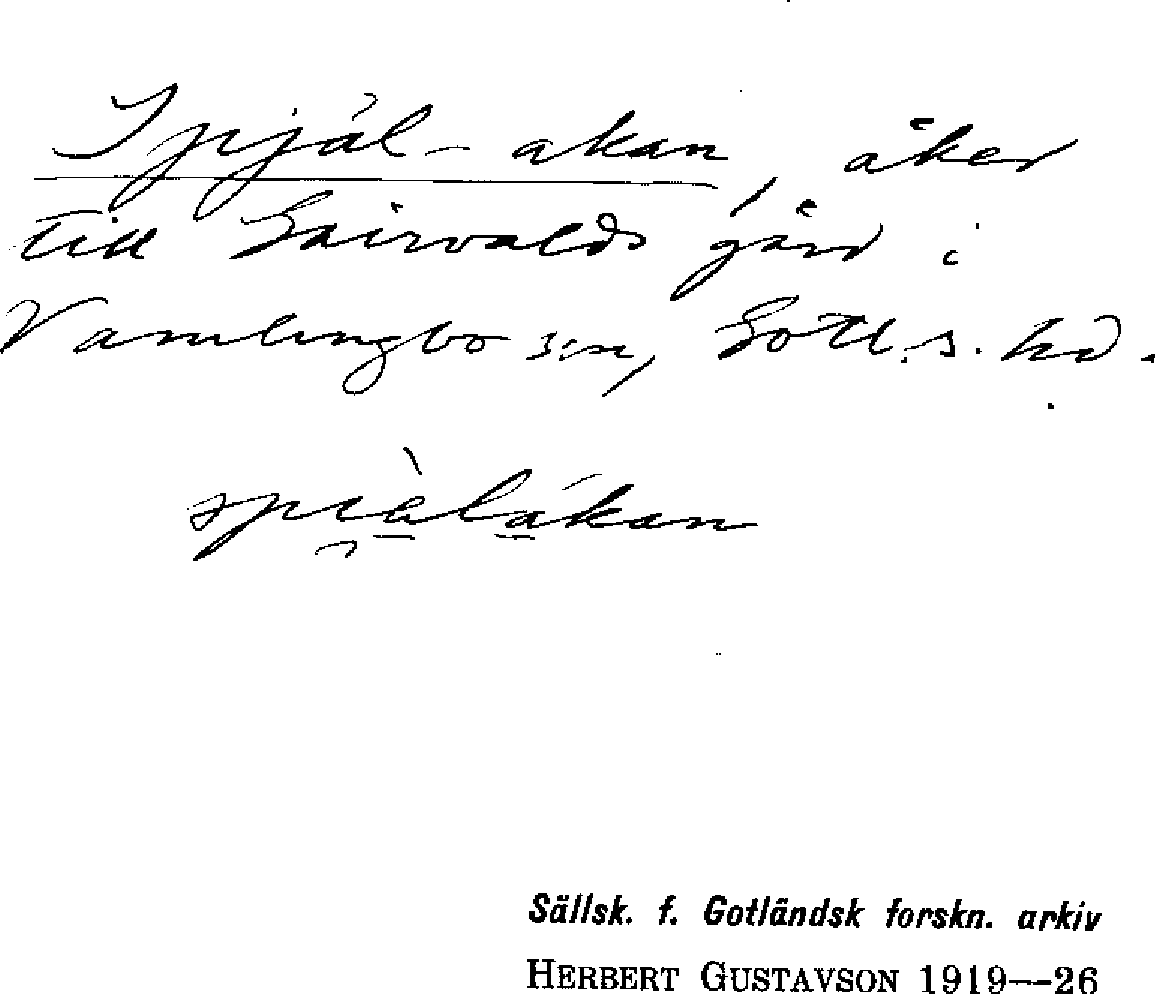 Spjäl-akan, åker
till Gairvalds gård i
Vamlingbo s:n, Gotl. s. hd.
spi̯àlákan
Sällsk. f. Gotländsk forskn. arkiv
HERBERT GUSTAVSON 1919—26